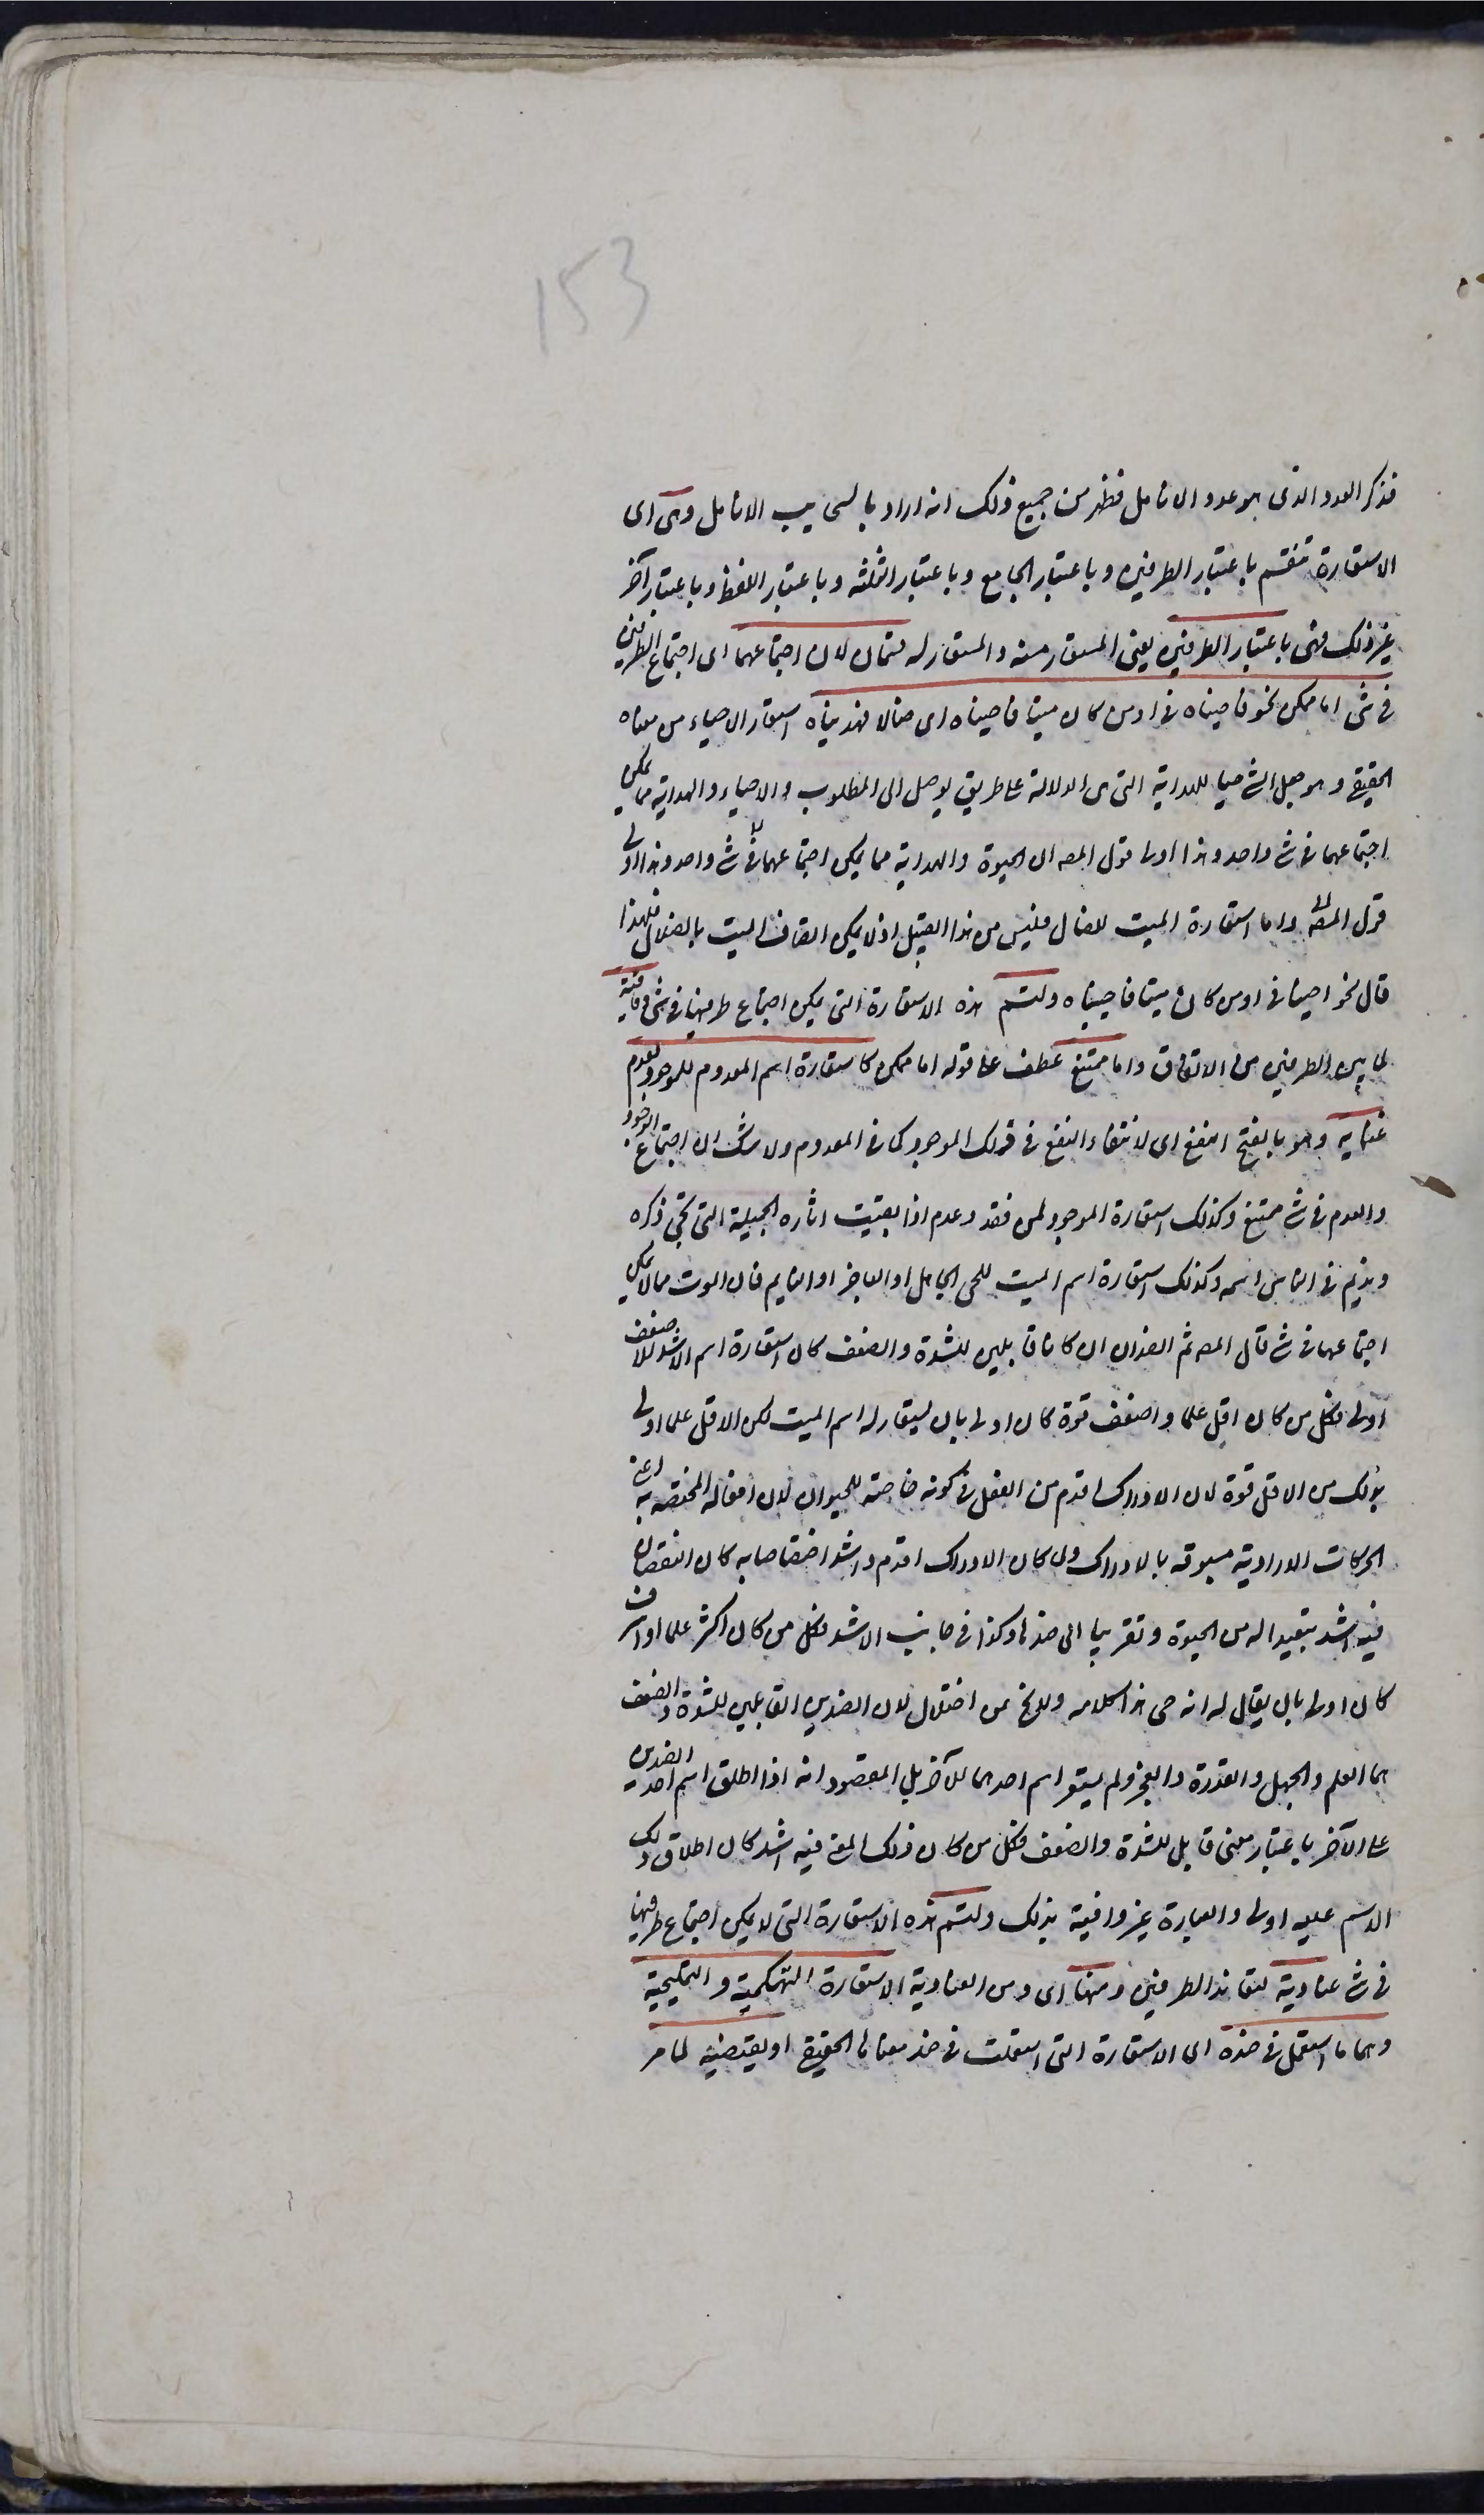 153
فذكر العدد الذى هو عدد الانامل فظهر من جميع ذلك انه اراد بالسحايب الانامل وهى اى
الاستعارة تنقسم باعتبار الطرفين وباعتبار الجامع وباعتبار الثلثة وباعتبار اللفظ وباعتبار آخر
غير ذلك فهى باعتبار الطرفين يعنى المستعار منه والمستعار له قسمان لان اجتماعهما اى اجتماع الطرفين
فى شئ اما ممكن نحو فاحييناه فى اومن كان ميتا فاحييناه اى ضالا فهديناه استعار الاحياء من معناه
الحقيقى وهو جعل الشئ حيا للهداية التى هى الدلالة على طريق يوصل الى المطلوب والاحياء والهداية مما يمكن
اجتماعهما فى شئ واحد وهذا اولى قول المصه ان الحيوة والهداية مما يمكن اجتماعهما فى شئ واحد وهذا اولى
قول المصه واما استعارة الميت للضال فليس من هذا القبيل اذ لا يمكن اتصاف الميت بالضلال فلهذا
قال نحو احييناه فى اومن كان ميتا فاحييناه ولتسم هذه الاستعارة التى يمكن اجتماع طرفيها فى شئ وفاقية
لما بين الطرفين من الاتفاق واما ممتنع عطف على قوله اما ممكن كاستعارة اسم المعدوم للموجود لعدم
غنايه وهو بالفتح النفع اى لانتفاء النفع فى ذلك الموجود كما فى المعدوم ولا شك ان اجتماع الوجود
والعدم فى شئ ممتنع وكذلك استعارة الموجود لمن فقد وعدم اذا بقيت اثاره الجميلة التى تحيى ذكره
وتديم فى الناس اسمه وكذلك استعارة اسم الميت للحى الجاهل او العاجز او النايم فان الموت مما لا يمكن
اجتماعهما فى شئ قال المصه ثم الضدان ان كانا قابلين للشدة والضعف كان استعارة اسم الاشد للاضعف
اولى فكل من كان اقل علما واضعف قوة كان اولى بان يستعار له اسم الميت لكن الاقل علما اولى
بذلك من الاقل قوة لان الادراك اقدم من الفعل فى كونه خاصة للحيوان لان افعاله المختصة به اعنى
الحركات الارادية مسبوقة بالادراك ولما كان الادراك اقدم واشد اختصاصا به كان النقصان
فيه اشد تبعيدا له من الحيوة وتقريبا الى ضدها وكذا فى جانب الاشد فكل من كان اكثر علما او اشرف
كان اولى بان يقال له انه حى هذا كلامه ولا يخ عن اختلال لان الضدين القابلين للشدة والضعف
هما العلم والجهل والقدرة والعجز ولم يستعر اسم احدهما للآخر بل المقصود انه اذا اطلق اسم احد الضدين
على الآخر باعتبار معنى قابل للشدة والضعف فكل من كان ذلك المعنى فيه اشد كان اطلاق ذلك
الاسم عليه اولى والعبارة غير وافية بذلك ولتسم هذه الاستعارة التى لا يمكن اجتماع طرفيها
فى شئ عنادية لتعاند الطرفين ومنها اى ومن العنادية الاستعارة التهكمية والتمليحية
وهما ما استعمل فى ضده اى الاستعارة التى استعملت فى ضد معناها الحقيقى او نقيضه لما مر